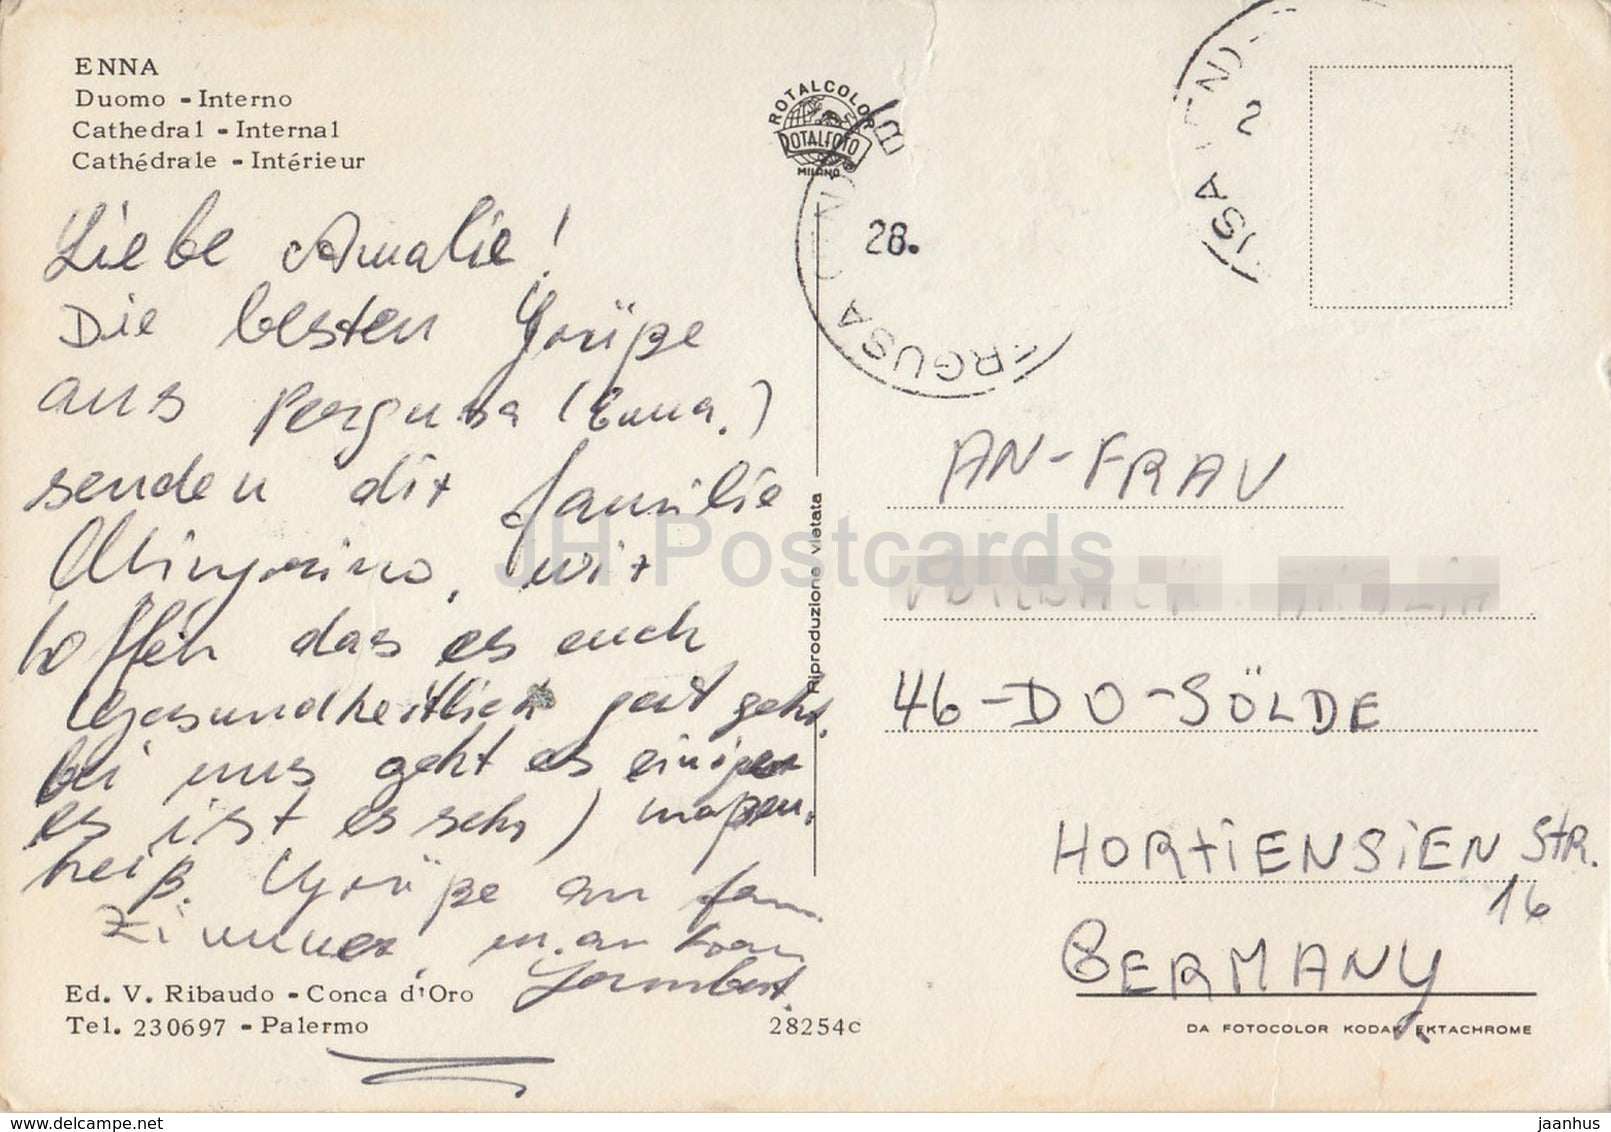 ENNA
Duomo - Interno
Cathedral - Internal
Cathédrale - Intérieur
ROTALCOLOR
ROTALFOTO
MILANO
28.
2
Liebe Amalie!
Die besten Grüße
aus Pergusa (Enna.)
senden dir familie
Mingorino, wir
hoffen das es euch
Gesundheitlich gut geht.
bei uns geht es einiger
es ist es sehr ) maßen.
heiß. Grüße an fam.
Zimmer, u. an Frau
Riproduzione vietata
JH Postcards
AN-FRAU
46-DO-SÖLDE
HORTIENSIEN STR.
16
GERMANY
Ed. V. Ribaudo - Conca d'Oro
Tel. 230697 - Palermo
28254c
DA FOTOCOLOR KODAK EKTACHROME
delcampe.net
jaanhus